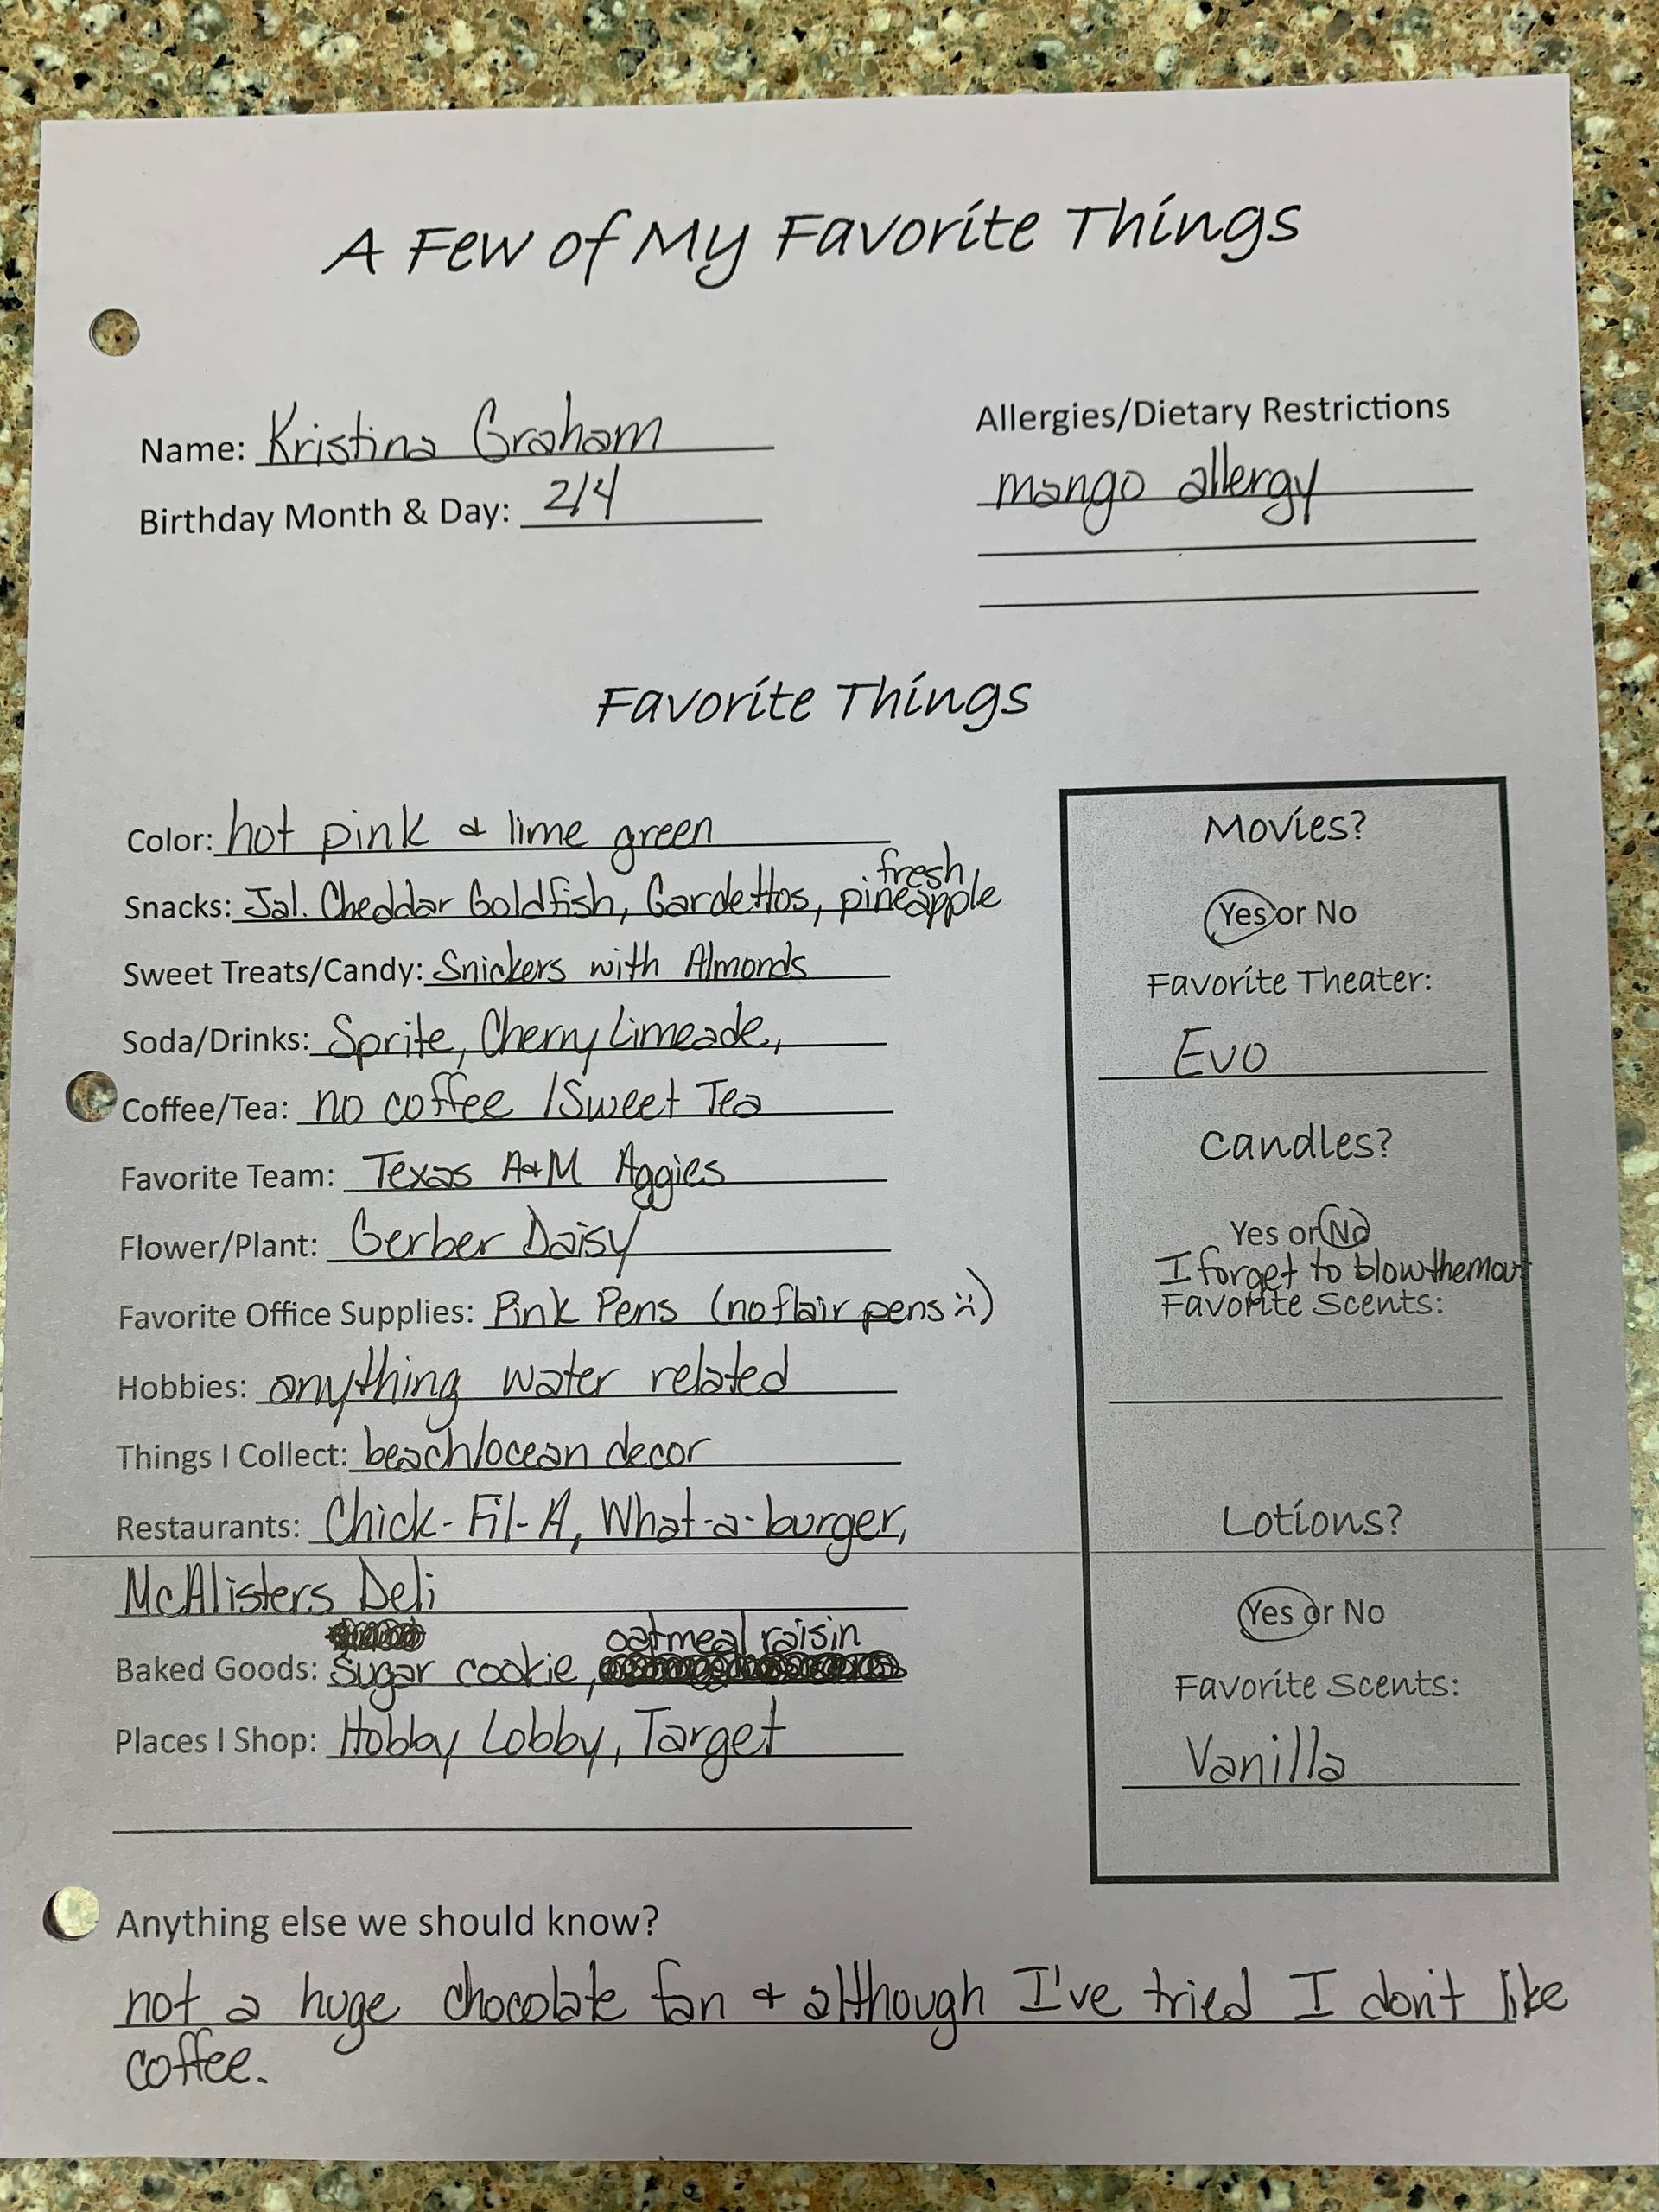 A Few of My Favorite Things
Name: Kristina Graham
Birthday Month & Day: 2/4
Allergies/Dietary Restrictions
mango allergy
Favorite Things
Color: hot pink & lime green
fresh
Snacks: Jal. Cheddar Goldfish, Gardettos, pineapple
Sweet Treats/Candy: Snickers with Almonds
Soda/Drinks: Sprite, Cherry Limeade,
Coffee/Tea: no coffee /Sweet Tea
Favorite Team: Texas A&M Aggies
Flower/Plant: Gerber Daisy
Favorite Office Supplies: Pink Pens (no flair pens :))
Hobbies: anything water related
Things I Collect: beach/ocean decor
Restaurants: Chick-Fil-A, What-a-burger,
McAlisters Deli
oatmeal raisin
Baked Goods: Sugar cookie,
Places I Shop: Hobby Lobby, Target
Movies?
Yes or No
Favorite Theater:
Evo
Candles?
Yes or No
I forget to blow them out
Favorite Scents:
Lotions?
Yes or No
Favorite Scents:
Vanilla
Anything else we should know?
not a huge chocolate fan & although I've tried I don't like
coffee.